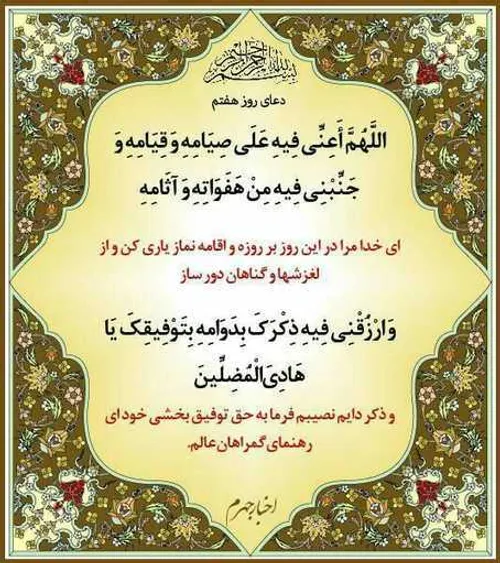 بسم الله الرحمن الرحیم
دعای روز هفتم
اللَّهُمَّ أَعِنِّي فِيهِ عَلَى صِيَامِهِ وَ قِيَامِهِ وَ
جَنِّبْنِي فِيهِ مِنْ هَفَوَاتِهِ وَ آثَامِهِ
ای خدا مرا در این روز بر روزه و اقامه نماز یاری کن و از
لغزشها و گناهان دور ساز
وَ ارْزُقْنِي فِيهِ ذِكْرَكَ بِدَوَامِهِ بِتَوْفِيقِكَ يَا
هَادِيَ الْمُضِلِّينَ
و ذکر دایم نصیبم فرما به حق توفیق بخشی خود ای
رهنمای گمراهان عالم.
اخبار جهرم